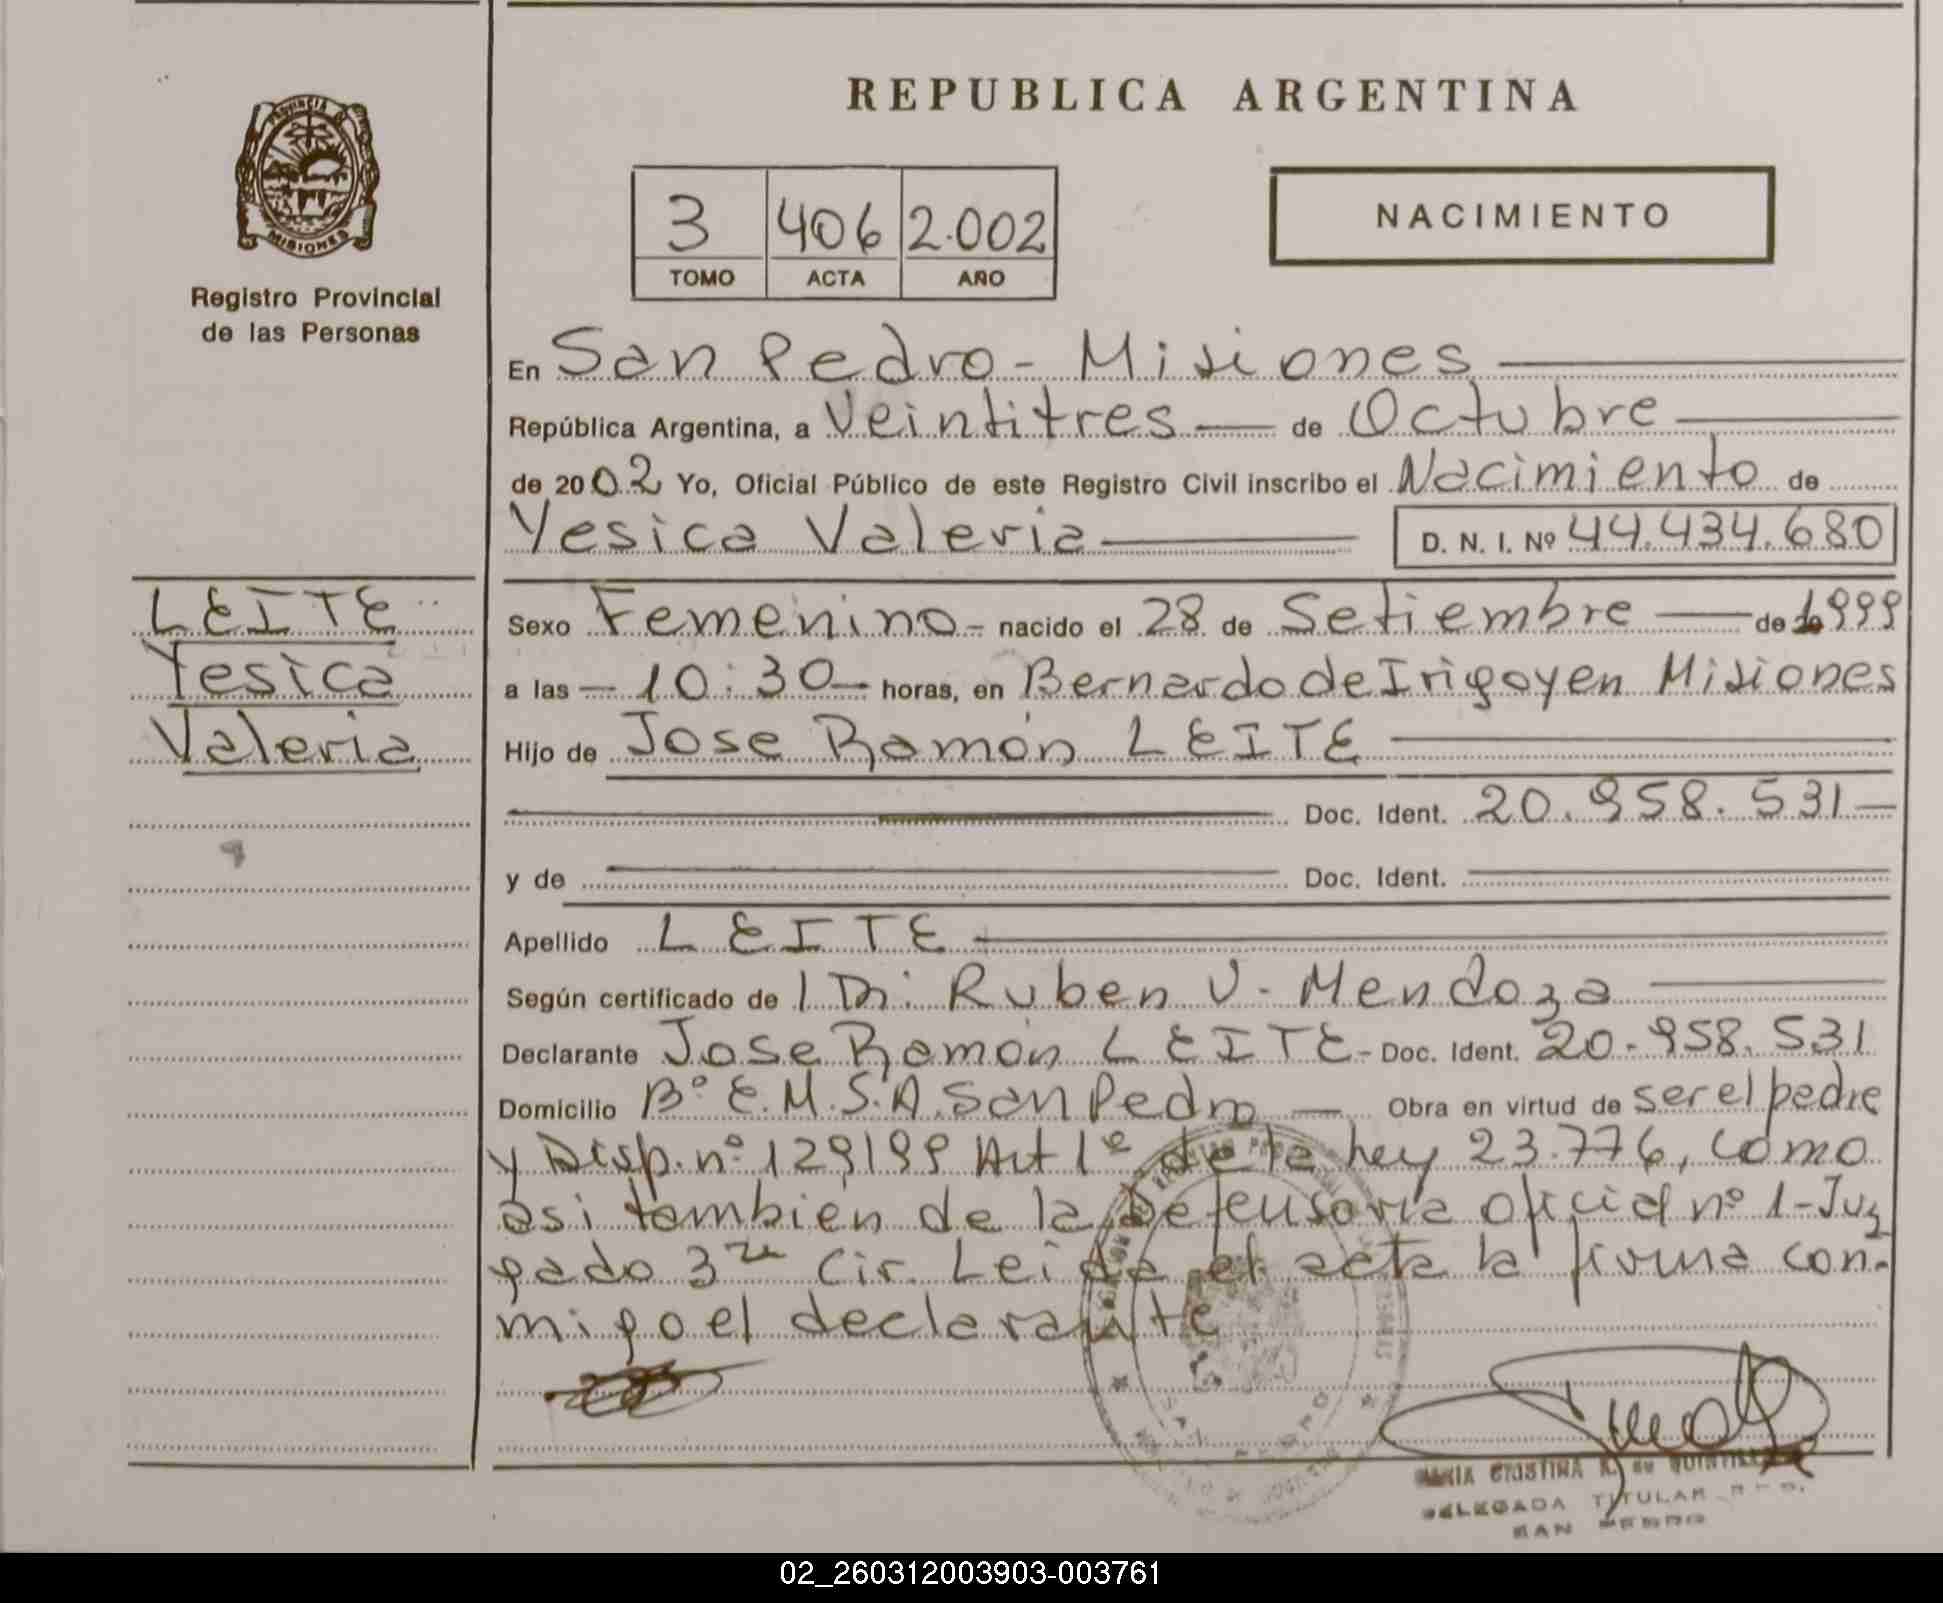 REPUBLICA ARGENTINA
PROVINCIA DE
MISIONES
Registro Provincial
de las Personas
3 406 2.002
TOMO ACTA AÑO
NACIMIENTO
En San Pedro - Misiones
República Argentina, a Veintitres de Octubre
de 2002 Yo, Oficial Público de este Registro Civil inscribo el Nacimiento de
Yesica Valeria D. N. I. Nº 44.434.680
LEITE
Yesica
Valeria
Sexo Femenino - nacido el 28 de Setiembre de 1999
a las - 10:30 - horas, en Bernardo de Irigoyen Misiones
Hijo de Jose Ramón LEITE
Doc. Ident. 20.958.531-
y de Doc. Ident.
Apellido LEITE
Según certificado de Dr. Ruben V. Mendoza
Declarante Jose Ramón LEITE - Doc. Ident. 20.958.531
Domicilio Bº E.M.S.A. San Pedro - Obra en virtud de ser el padre
y Disp. nº 129/99 Art 1º de la Ley 23.776, como
asi tambien de la Defensoria oficial nº 1-Juz
gado 3ra Cir. Leida el acta la firma con-
migo el declarante
SAN PEDRO
MARIA CRISTINA R. de
DELEGADA TITULAR
SAN PEDRO
02_260312003903-003761